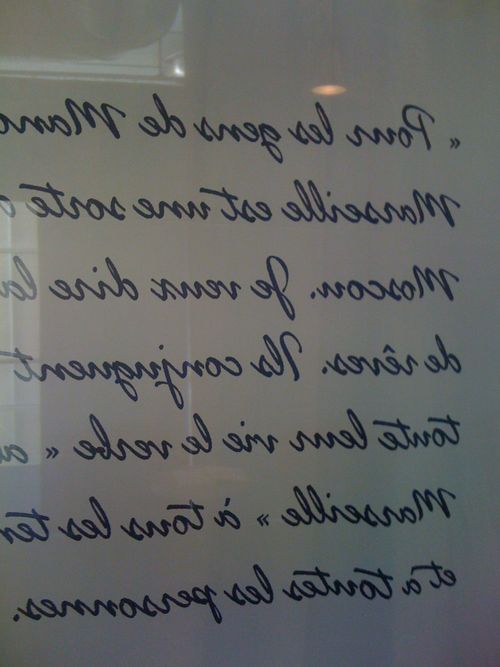 « Pour les gens de Mano
Marseille est une sorte
Moscou. Je veux dire la
de rêves. Ils conjuguent
toute leur vie le verbe « a
Marseille » à tous les tem
et à toutes les personnes.